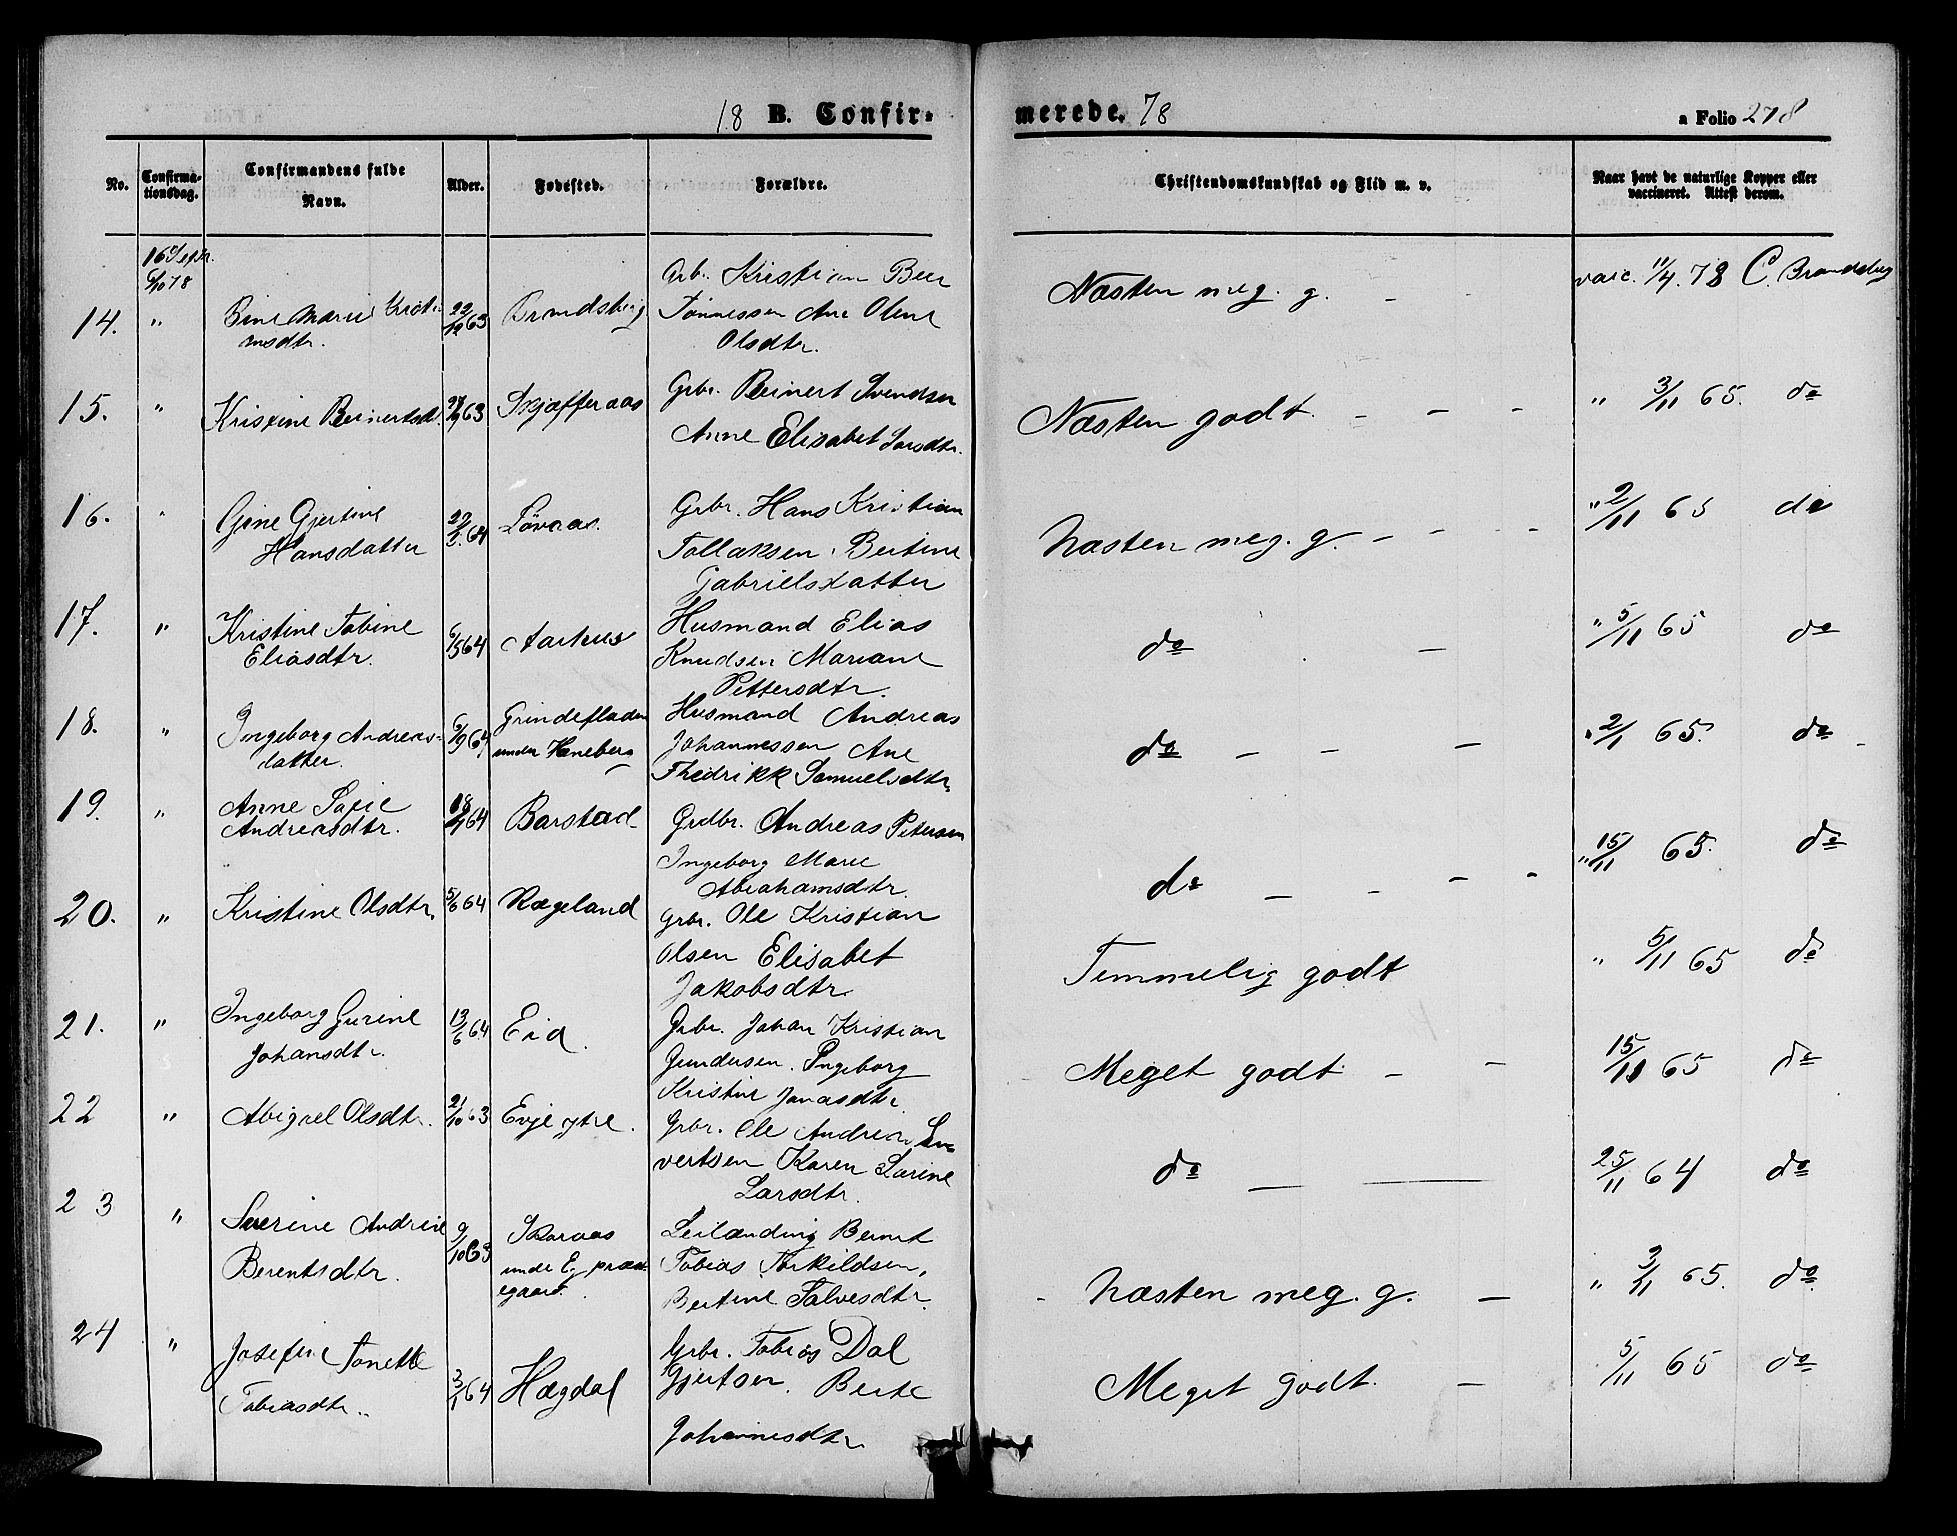 18 B. Confir- merede. 78 a Folio 278
No. Confirma-tionsdag. Confirmandens fulde Navn. Alder. Fødested. Forældre. Christendomskundskab og Flid m. v. Naar havt de naturlige Kopper eller vaccineret. Attest derom.
16 Septr.
6/10 78
Grb. Kristian Beer
14. " Bine Marie Kristi- 22/12 63 Brandsberg Tønnessen Ane Oline Næsten meg. g. - vacc. 11/4 78 C. Brandsberg
ansdtr. Olsdtr.
15. " Kristine Beinertsd. 63 Skjefferaas Grbr. Beinert Svendsen Næsten godt. - - - " 3/11 65. do
Anne Elisabet Larsdtr.
16. " Gine Gjertine 64 Løvaas. Grbr. Hans Kristian Næsten meg. g. - - - - " 2/11 65 do
Hansdatter Tollaksen. Bertine
Gabrielsdatter
17. " Kristine Tobine 6/5 64 Aarhus Husmand Elias do - " 5/11 65 do
Eliasdtr. Knudsen Mariane
Pettersdtr.
18. " Ingeborg Andreas- 6/9 64 Grindefladen Husmand Andreas do - - - " 2/1 65. do
datter. under Haneberg Johannessen Ane
Fredrikk Samuelsdtr.
19. " Anne Sofie 18/4 64 Barstad Grdbr. Andreas Petersen do - - - - " 15/11 65. do
Andreasdtr. Ingeborg Marie
Abrahamsdtr.
20. " Kristine Olsdtr. 5/6 64 Rægeland Grbr. Ole Kristian Temmelig godt " 5/11 65 do
Olsen Elisabet
Jakobsdtr.
21. " Ingeborg Gurine 13/6 64 Eid. Grbr. Johan Kristian Meget godt - - 15/11 65 do
Johansdtr. Gundersen. Ingeborg
Kristine Jonasdtr.
22 " Abigael Olsdtr. 21/10 63 Evje ytre. Grbr. Ole Andreas Si- do - 25/11 64 do
vertsen Karen Larine
Larsdtr.
23 " Severine Andrine 9/10 63 Skaraas Leilænding Bernt Næsten meg. g. - " 3/11 65. do
Berentsdtr. under Eg præste- Tobias Torkildsen,
egaard. Bertine Salvesdtr.
24 " Josefine Tonette 3/1 64 Hægdal Grbr. Tobias Dal Meget godt. - 5/11 65 do
Tobiasdtr. Gjertsen. Berte
Johannesdtr.